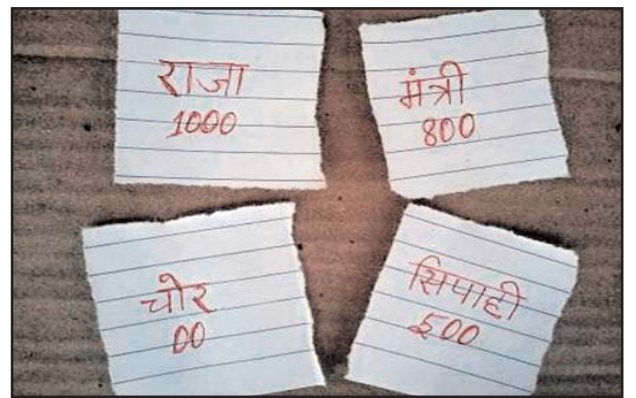 राजा
1000
मंत्री
800
चोर
00
सिपाही
500